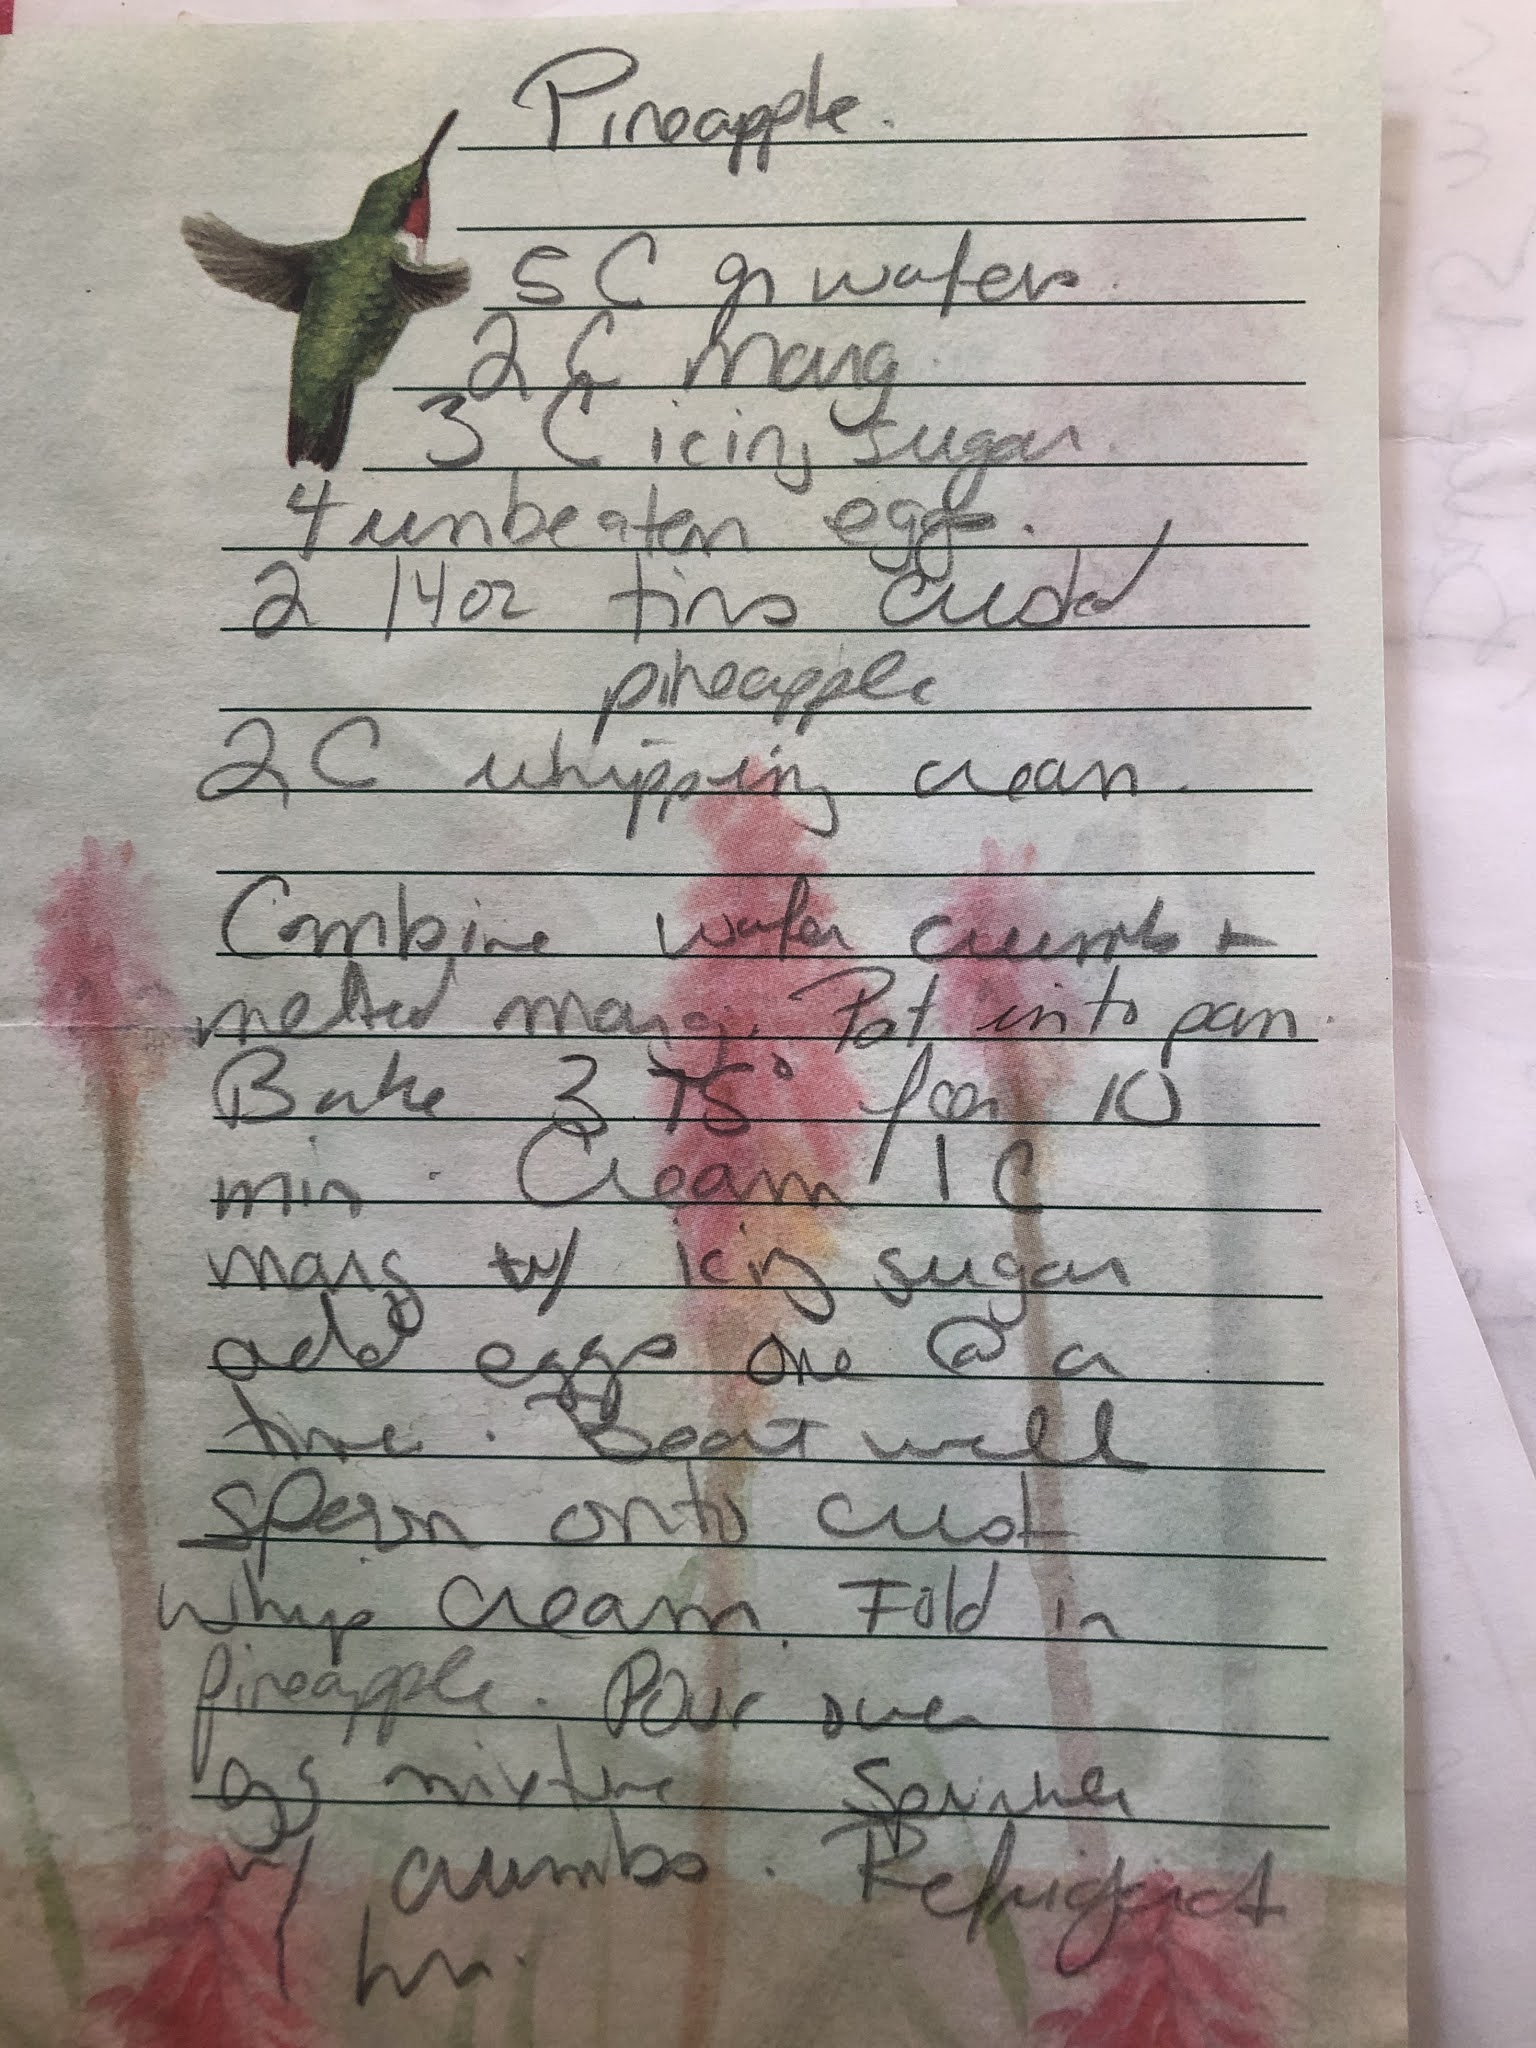 Pineapple.
5 C gr wafers.
2 C marg.
3 C icing sugar.
4 unbeaten eggs.
2 14oz tins crushed
pineapple
2 C whipping cream.
Combine wafer crumbs +
melted marg. Pat into pan.
Bake 375° for 10
min. Cream 1 C
marg w/ icing sugar
add eggs one @ a
time. Beat well
spoon onto crust
whip cream. Fold in
pineapple. Pour over
mixture Sprinkle
w/ crumbs. Refrigerat
hr.